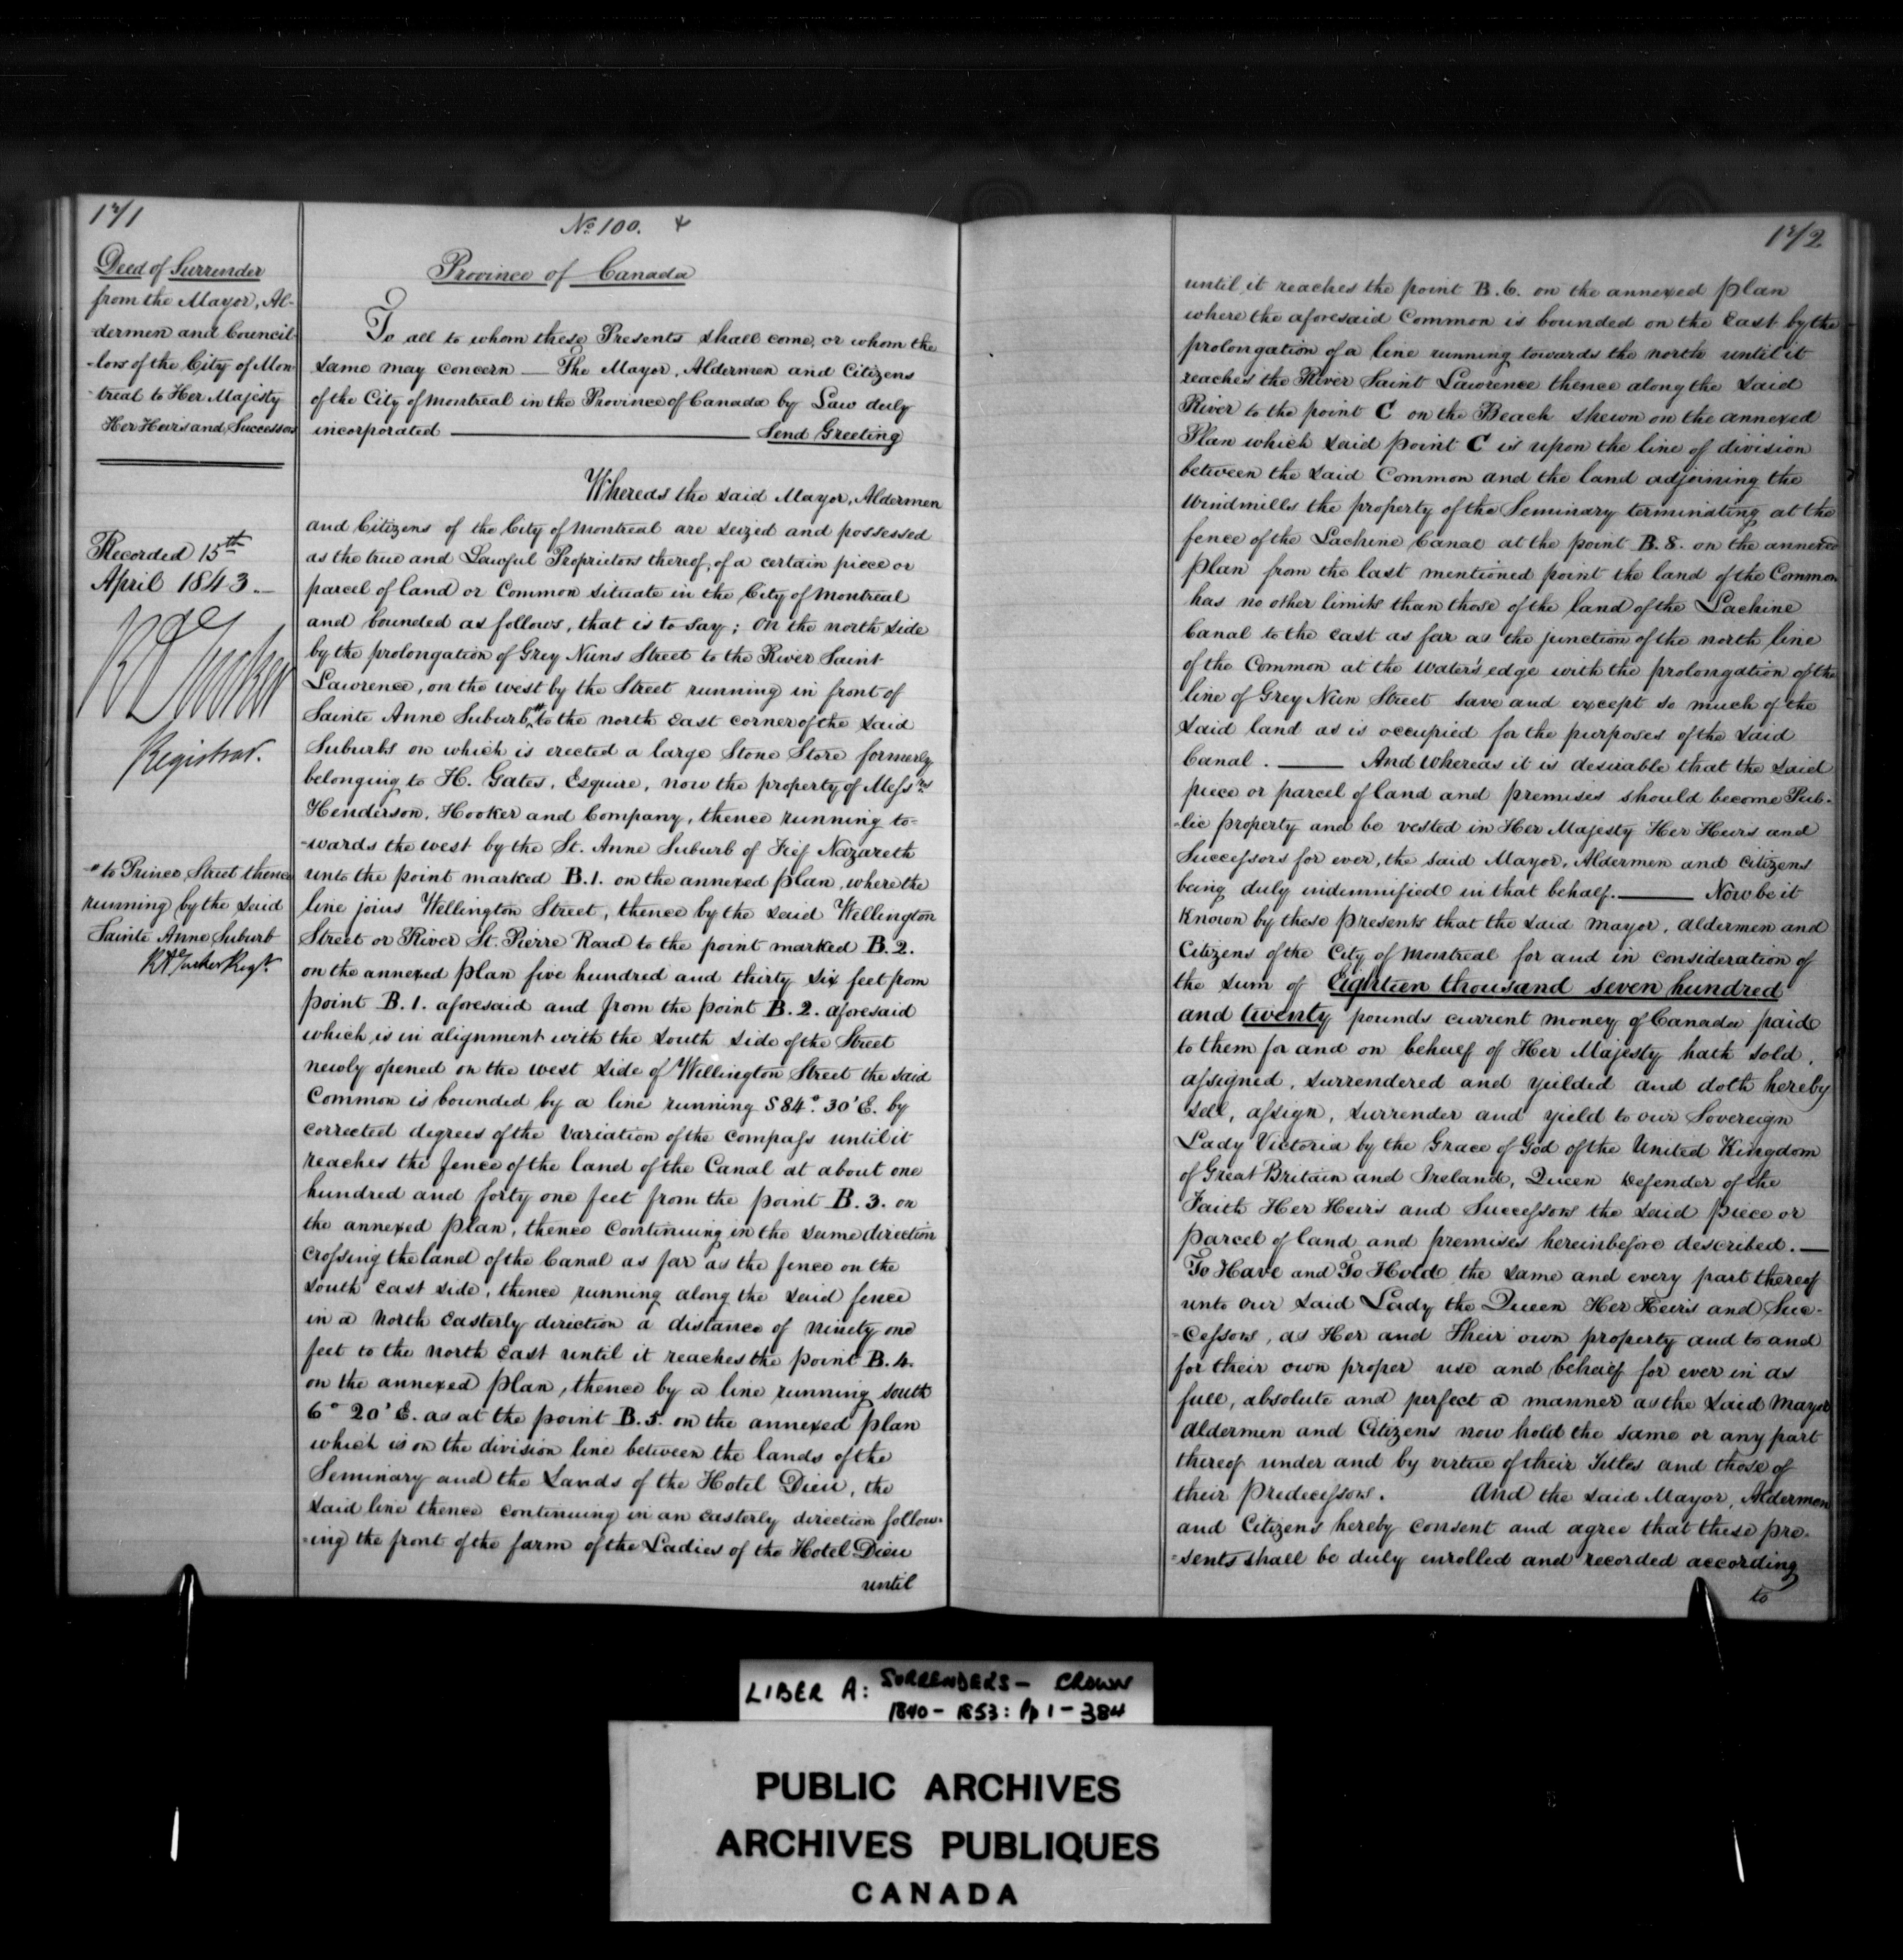 171
Deed of Surrender
from the Mayor, Al-
-dermen and Council-
-lors of the City of Mon-
-treal to Her Majesty
Her Heirs and Successors
Recorded 15th
April 1843.—
R A Tucker
Registrar.
# to Prince Street thence
running by the said
Sainte Anne Suburb
RA Tucker Regr.
No. 100.
Province of Canada
To all to whom these Presents shall come, or whom the
same may concern — The Mayor, Aldermen and Citizens
of the City of Montreal in the Province of Canada by Law duly
incorporated — Send Greeting
Whereas the said Mayor, Aldermen
and Citizens of the City of Montreal are seized and possessed
as the true and Lawful Proprietors thereof, of a certain piece or
parcel of land or Common situate in the City of Montreal
and bounded as follows, that is to say; On the north side
by the prolongation of Grey Nuns Street to the River Saint
Lawrence, on the west by the Street running in front of
Sainte Anne Suburb # to the north east corner of the said
Suburbs on which is erected a large Stone Store formerly
belonging to H. Gates, Esquire, now the property of Messrs
Henderson, Hooker and Company, thence running to-
-wards the west by the St. Anne Suburb of Fief Nazareth
unto the point marked B.1. on the annexed plan, where the
line joins Wellington Street, thence by the said Wellington
Street or River St. Pierre Road to the point marked B.2.
on the annexed plan five hundred and thirty six feet from
point B.1. aforesaid and from the point B.2. aforesaid
which is in alignment with the south side of the Street
newly opened on the west side of Wellington Street the said
Common is bounded by a line running S 84° 30' E. by
corrected degrees of the variation of the compass until it
reaches the fence of the land of the Canal at about one
hundred and forty one feet from the point B.3. on
the annexed plan, thence continuing in the same direction
crossing the land of the Canal as far as the fence on the
south east side, thence running along the said fence
in a North Easterly direction a distance of ninety one
feet to the north east until it reaches the point B.4.
on the annexed plan, thence by a line running south
6° 20' E. as at the point B.5. on the annexed plan
which is on the division line between the lands of the
Seminary and the Lands of the Hotel Dieu, the
said line thence continuing in an easterly direction follow-
-ing the front of the farm of the Ladies of the Hotel-Dieu
until
172
until it reaches the point B.6. on the annexed plan
where the aforesaid Common is bounded on the East by the
prolongation of a line running towards the north until it
reaches the River Saint Lawrence thence along the said
River to the point C on the Beach shewn on the annexed
Plan which said point C is upon the line of division
between the said Common and the land adjoining the
Windmills the property of the Seminary terminating at the
fence of the Lachine Canal at the point B.8. on the annexed
Plan from the last mentioned point the land of the Common
has no other limits than those of the land of the Lachine
Canal to the east as far as the junction of the north line
of the Common at the water's edge with the prolongation of the
line of Grey Nun Street save and except so much of the
said land as is occupied for the purposes of the said
Canal. — And whereas it is desirable that the said
piece or parcel of land and premises should become Pub-
-lic property and be vested in Her Majesty Her Heirs and
Successors for ever, the said Mayor, Aldermen and Citizens
being duly indemnified in that behalf. — Now be it
Known by these presents that the said Mayor, Aldermen and
Citizens of the City of Montreal for and in consideration of
the sum of Eighteen thousand seven hundred
and twenty pounds current money of Canada paid
to them for and on behalf of Her Majesty hath sold,
assigned, surrendered and yielded and doth hereby
sell, assign, surrender and yield to our Sovereign
Lady Victoria by the Grace of God of the United Kingdom
of Great Britain and Ireland, Queen Defender of the
Faith Her Heirs and Successors the said piece or
parcel of land and premises hereinbefore described. —
To Have and To Hold the same and every part thereof
unto our said Lady the Queen Her Heirs and Suc-
-cessors, as Her and their own property and to and
for their own proper use and behalf for ever in as
full, absolute and perfect a manner as the said Mayor
Aldermen and Citizens now hold the same or any part
thereof under and by virtue of their Titles and those of
their Predecessors. And the said Mayor, Aldermen
and Citizens hereby consent and agree that these pre-
-sents shall be duly enrolled and recorded according
to
LIBER A: SURRENDERS - CROWN
1840 - 1853: Pp 1 - 384
PUBLIC ARCHIVES
ARCHIVES PUBLIQUES
CANADA